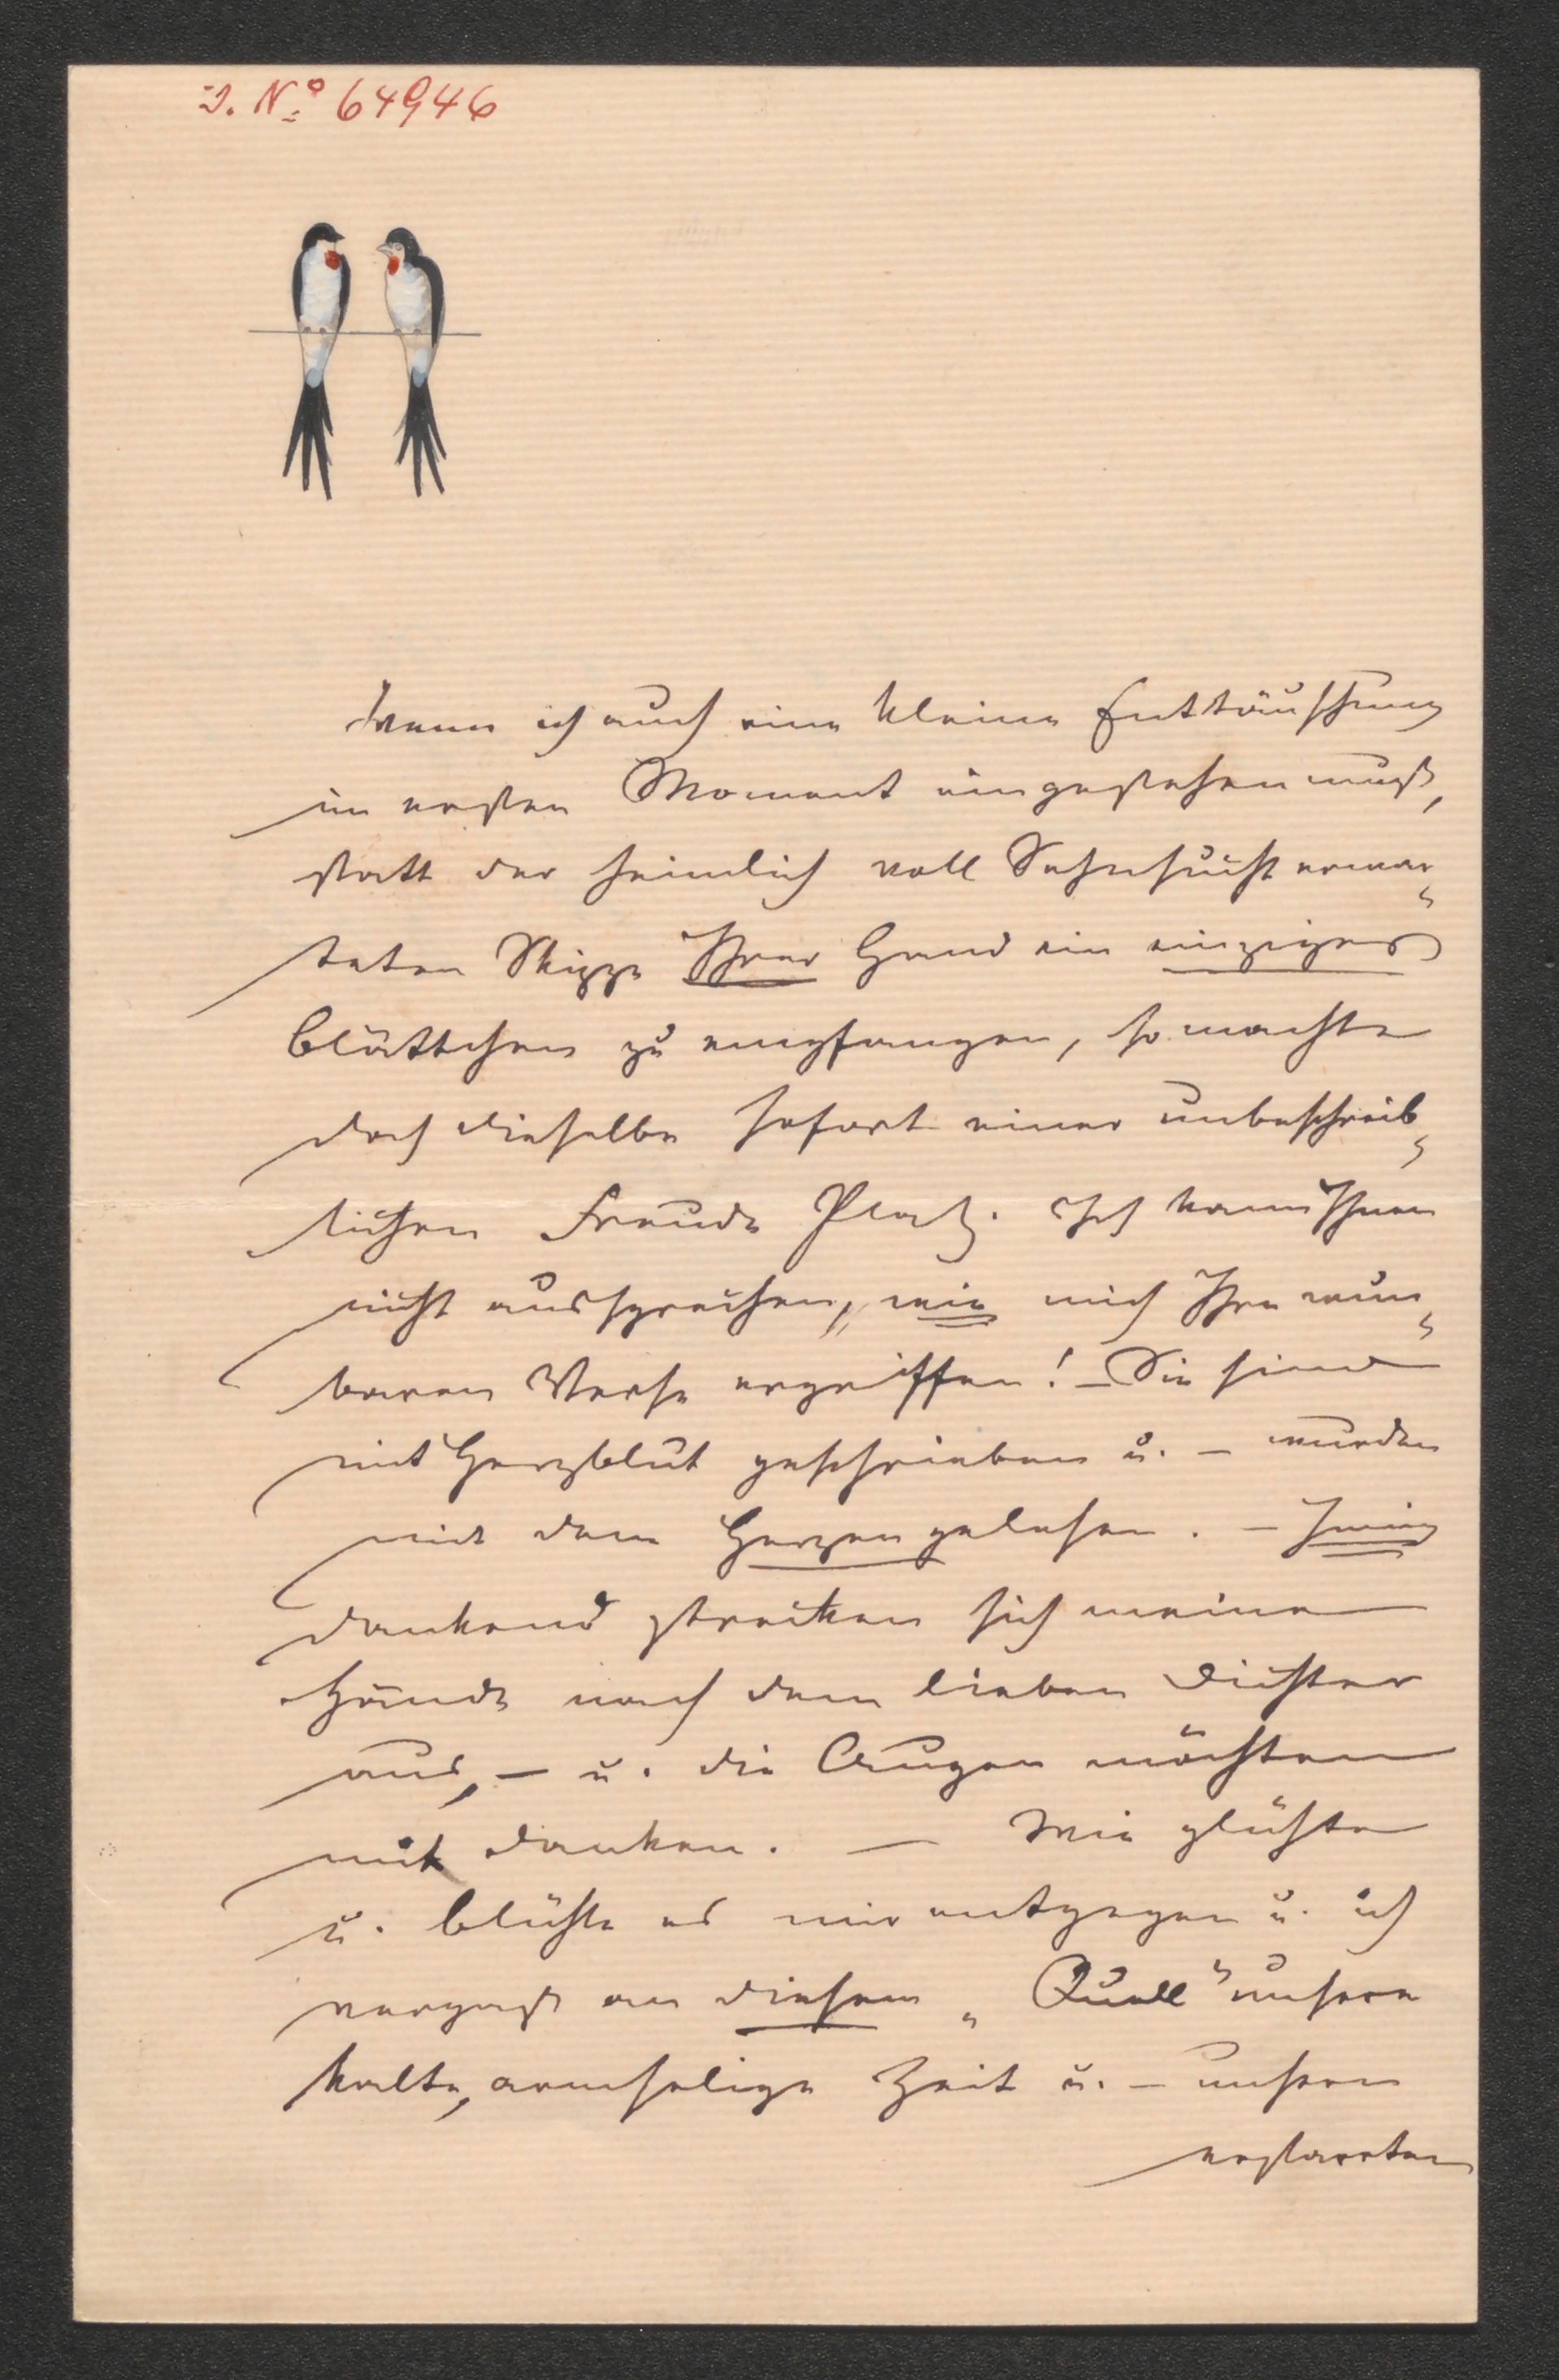 I. Nº 64946
Wenn ich auch eine kleine Enttäuschung
im ersten Moment eingestehen muß,
statt der heimlich voll Sehnsucht erwar-
teten Skizze Ihrer Hand ein einziges
Blättchen zu empfangen, so machte
doch dieselbe sofort einer unbeschreib-
lichen Freude Platz. Ich kann Ihnen
nicht aussprechen, wie mich Ihre wun-
baren Verse ergriffen! – Sie sind
mit Herzblut geschrieben u. – wurden
mit dem Herzen gelesen. – Innig
dankend strecken sich meine
Hände nach dem lieben Dichter
aus, – u. die Augen möchten
mit danken. – Wie glühte
u. blühte es mir entgegen u. ich
vergaß an diesem „Quell" unsere
kalte, armselige Zeit u. – unsern
erstarrten